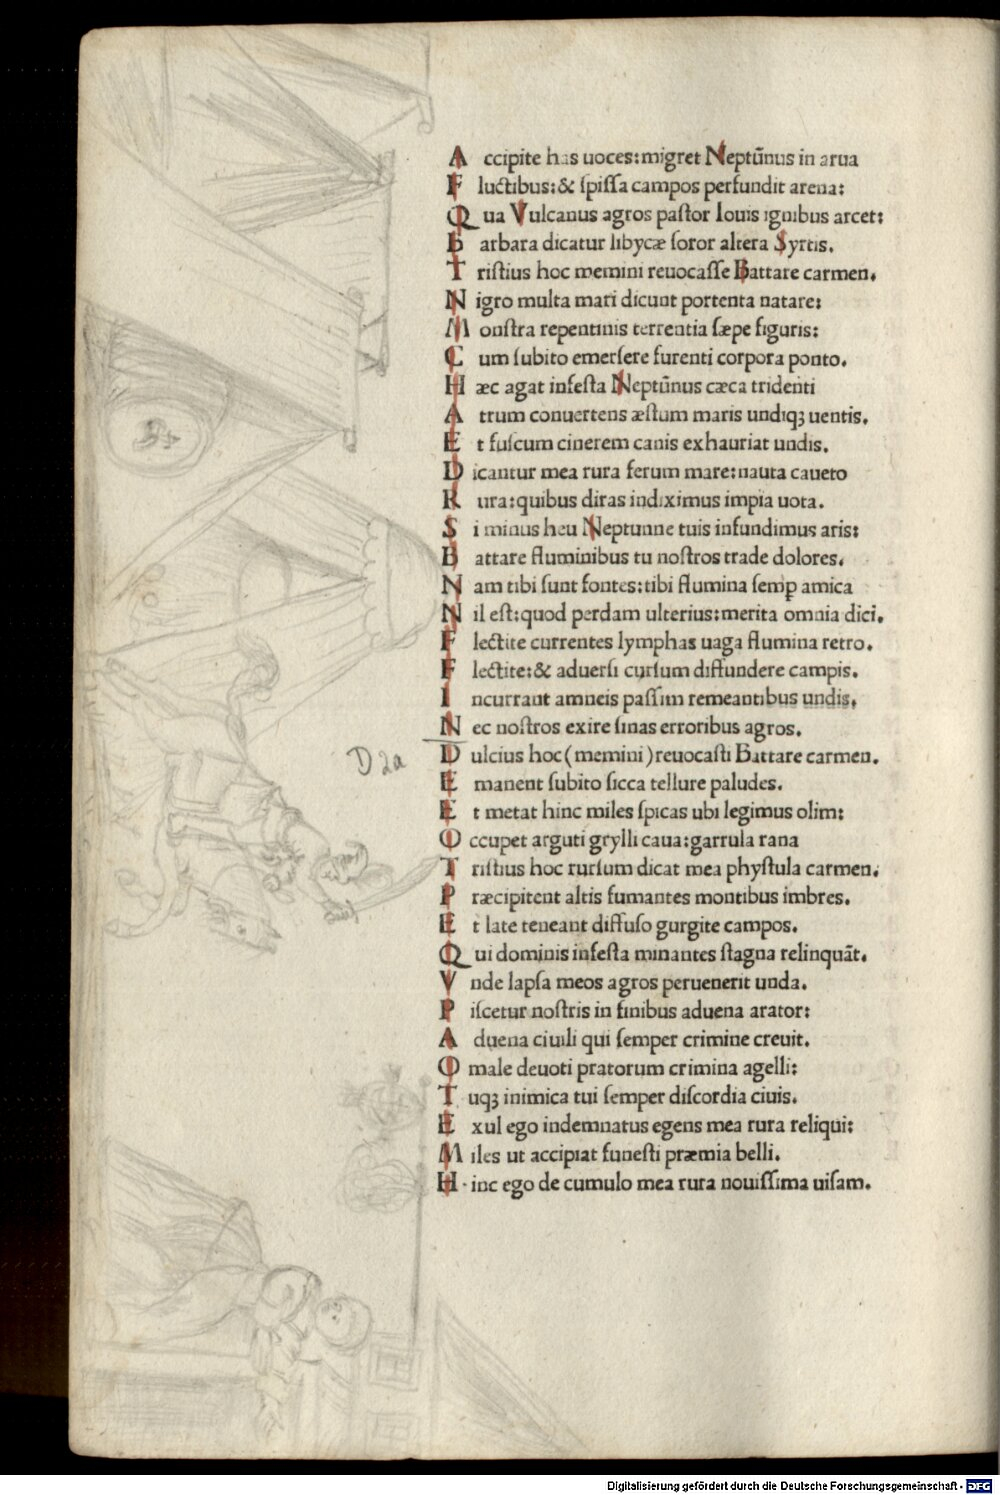 Accipite has uoces:migret Neptũnus in arua
Fluctibus:& ſpiſſa campos perfundit arena:
Qua Vulcanus agros paſtor Iouis ignibus arcet:
Barbara dicatur libycæ ſoror altera Syrtis.
Triſtius hoc memini reuocaſſe Battare carmen.
Nigro multa mari dicunt portenta natare:
Monſtra repentinis terrentia ſæpe figuris:
Cum ſubito emerſere furenti corpora ponto.
Hæc agat infeſta Neptũnus cæca tridenti
Atrum conuertens æſtum maris undiqꝫ uentis.
Et fuſcum cinerem canis exhauriat undis.
Dicantur mea rura ferum mare:nauta caueto
Rura:quibus diras indiximus impia uota.
Si minus heu Neptunne tuis infundimus aris:
Battare fluminibus tu noſtros trade dolores.
Nam tibi ſunt fontes:tibi flumina ſemꝑ amica
Nil eſt:quod perdam ulterius:merita omnia dici.
Flectite currentes lymphas uaga flumina retro.
Flectite:& aduerſi curſum diffundere campis.
Incurrant amneis paſſim remeantibus undis.
Nec noſtros exire ſinas erroribus agros.
D2a
Dulcius hoc(memini)reuocaſti Battare carmen.
Emanent ſubito ſicca tellure paludes.
Et metat hinc miles ſpicas ubi legimus olim:
Occupet arguti grylli caua:garrula rana
Triſtius hoc rurſum dicat mea phyſtula carmen.
Præcipitent altis fumantes montibus imbres.
Et late teneant diffuſo gurgite campos.
Qui dominis infeſta minantes ſtagna relinquãt.
Vnde lapſa meos agros peruenerit unda.
Piſcetur noſtris in finibus aduena arator:
Aduena ciuili qui ſemper crimine creuit.
O male deuoti pratorum crimina agelli:
Tuqꝫ inimica tui ſemper diſcordia ciuis.
Exul ego indemnatus egens mea rura reliqui:
Miles ut accipiat funeſti præmia belli.
Hinc ego de cumulo mea rura nouiſſima uiſam.
Digitalisierung gefördert durch die Deutsche Forschungsgemeinschaft - DFG